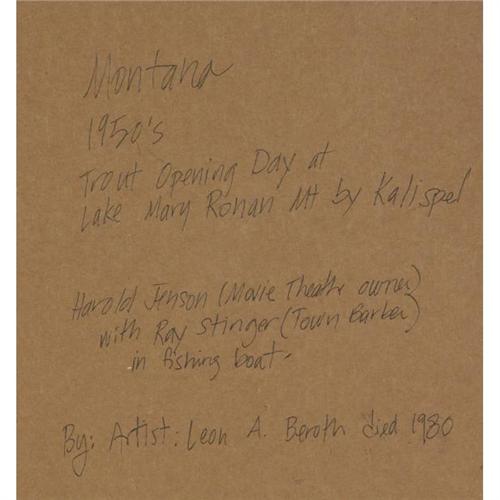 Montana
1950's
Trout Opening Day at
Lake Mary Ronan Mt by Kalispel
Harold Jenson (Movie Theatr owner)
with Ray Stinger (Town Barber)
in fishing boat.
By: Artist: Leon A. Beroth died 1980